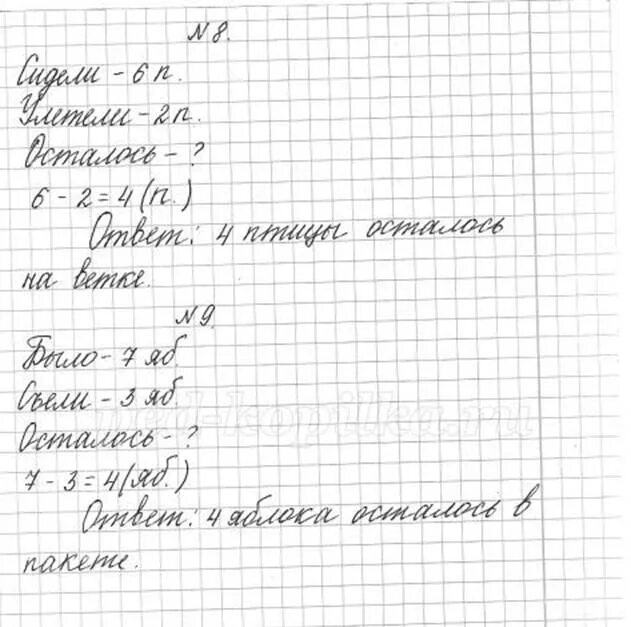 N 8.
Сидели - 6 п.
Улетели - 2 п.
Осталось - ?
6 - 2 = 4 (п.)
Ответ: 4 птицы осталось
на ветке.
N 9.
Было - 7 яб.
Съели - 3 яб.
Осталось - ?
7 - 3 = 4 (яб.)
Ответ: 4 яблока осталось в
пакете.